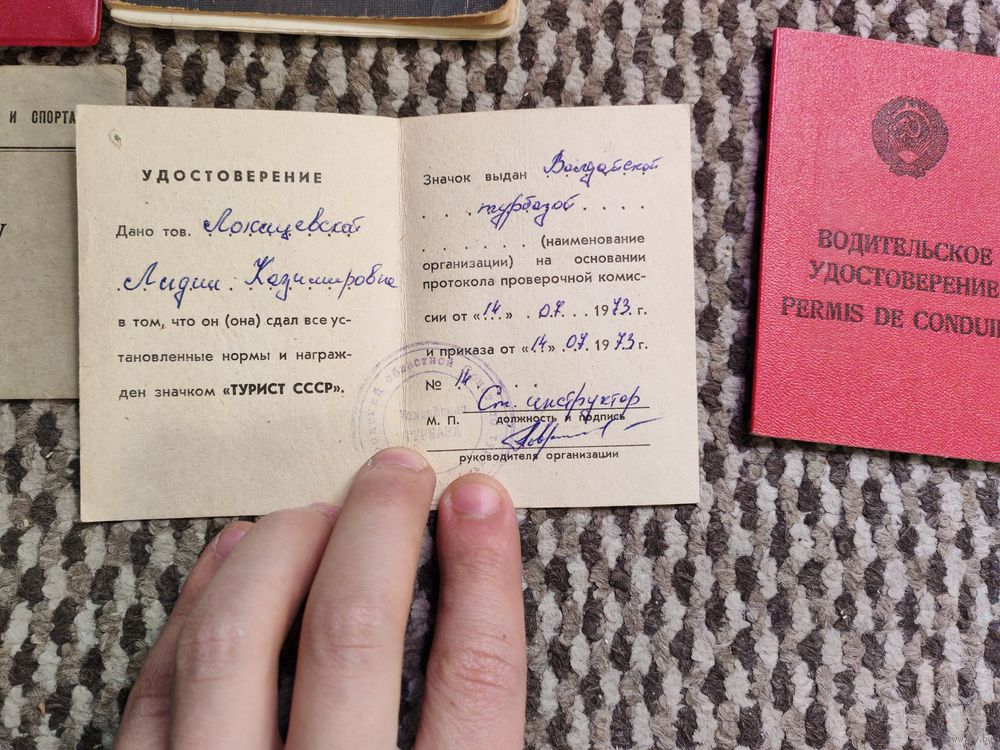 И СПОРТА
УДОСТОВЕРЕНИЕ
Дано тов. Локацевской
Лидии Казимировне
в том, что он (она) сдал все ус-
тановленные нормы и награж-
ден значком «ТУРИСТ СССР».
Значок выдан Валдайской
. . . . турбазой . . . .
. . . . . . . (наименование
организации) на основании
протокола проверочной комис-
сии от «14» . 07. . . 1973. г.
и приказа от «14» . 07. 1973. г.
№ 14
Ст. инструктор
М. П. должность и подпись
руководителя организации
ВОДИТЕЛЬСКОЕ
УДОСТОВЕРЕНИЕ
PERMIS DE CONDUI